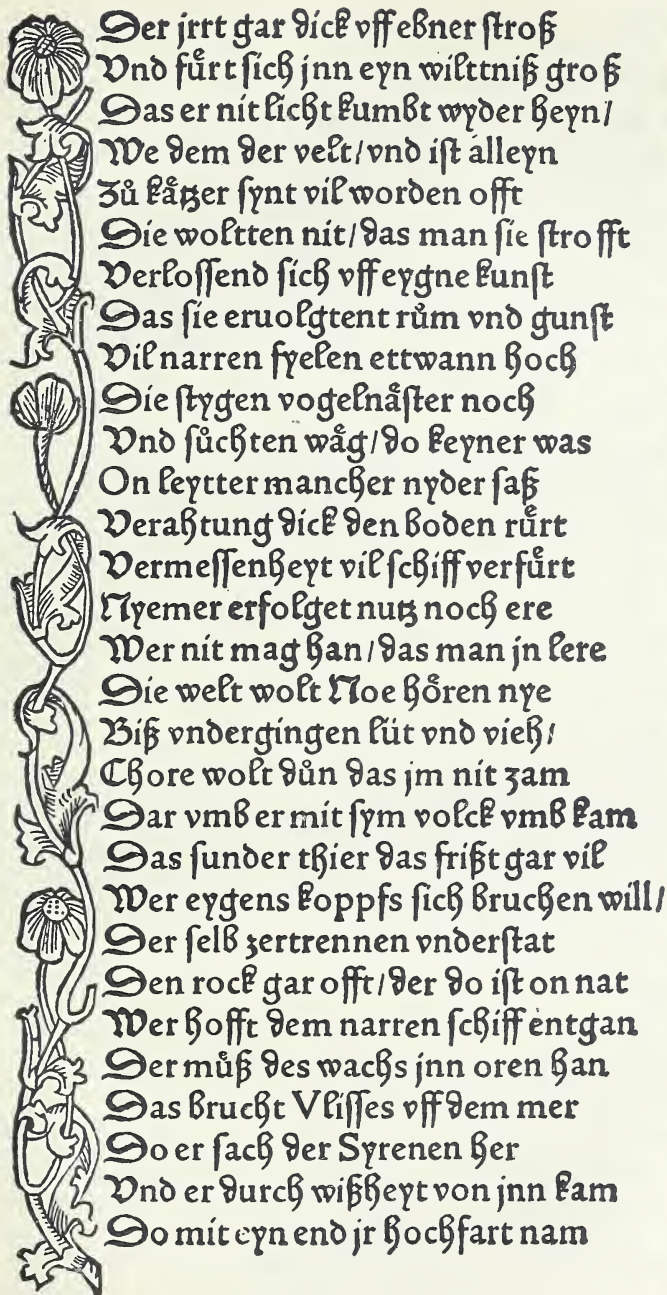 Der jrrt gar dick vff ebner stroß
Vnd fuͤrt sich jnn eyn wilttniß groß
Das er nit licht kumbt wyder heyn/
We dem der velt/vnd ist alleyn
Zuͦ kaͤtzer synt vil worden offt
Die woltten nit/das man sie strofft
Verlossend sich vff eygne kunst
Das sie eruolgtent ruͦm vnd gunst
Vil narren fyelen ettwann hoch
Die stygen vogelnaͤster noch
Vnd suͦchten waͤg/do keyner was
On leytter mancher nyder saß
Verahtung dick den boden ruͤrt
Vermessenheyt vil schiff verfuͤrt
Nyemer erfolget nutz noch ere
Wer nit mag han/das man jn lere
Die welt wolt Noe hoͤren nye
Biß vndergingen lüt vnd vieh/
Chore wolt duͦn das jm nit zam
Dar vmb er mit sym volck vmb kam
Das sunder thier das frißt gar vil
Wer eygens koppfs sich bruchen will/
Der selb zertrennen vnderstat
Den rock gar offt/der do ist on nat
Wer hofft dem narren schiff entgan
Der muͦß des wachs jnn oren han
Das brucht Vlisses vff dem mer
Do er sach der Syrenen her
Vnd er durch wißheyt von jnn kam
Do mit eyn end jr hochfart nam